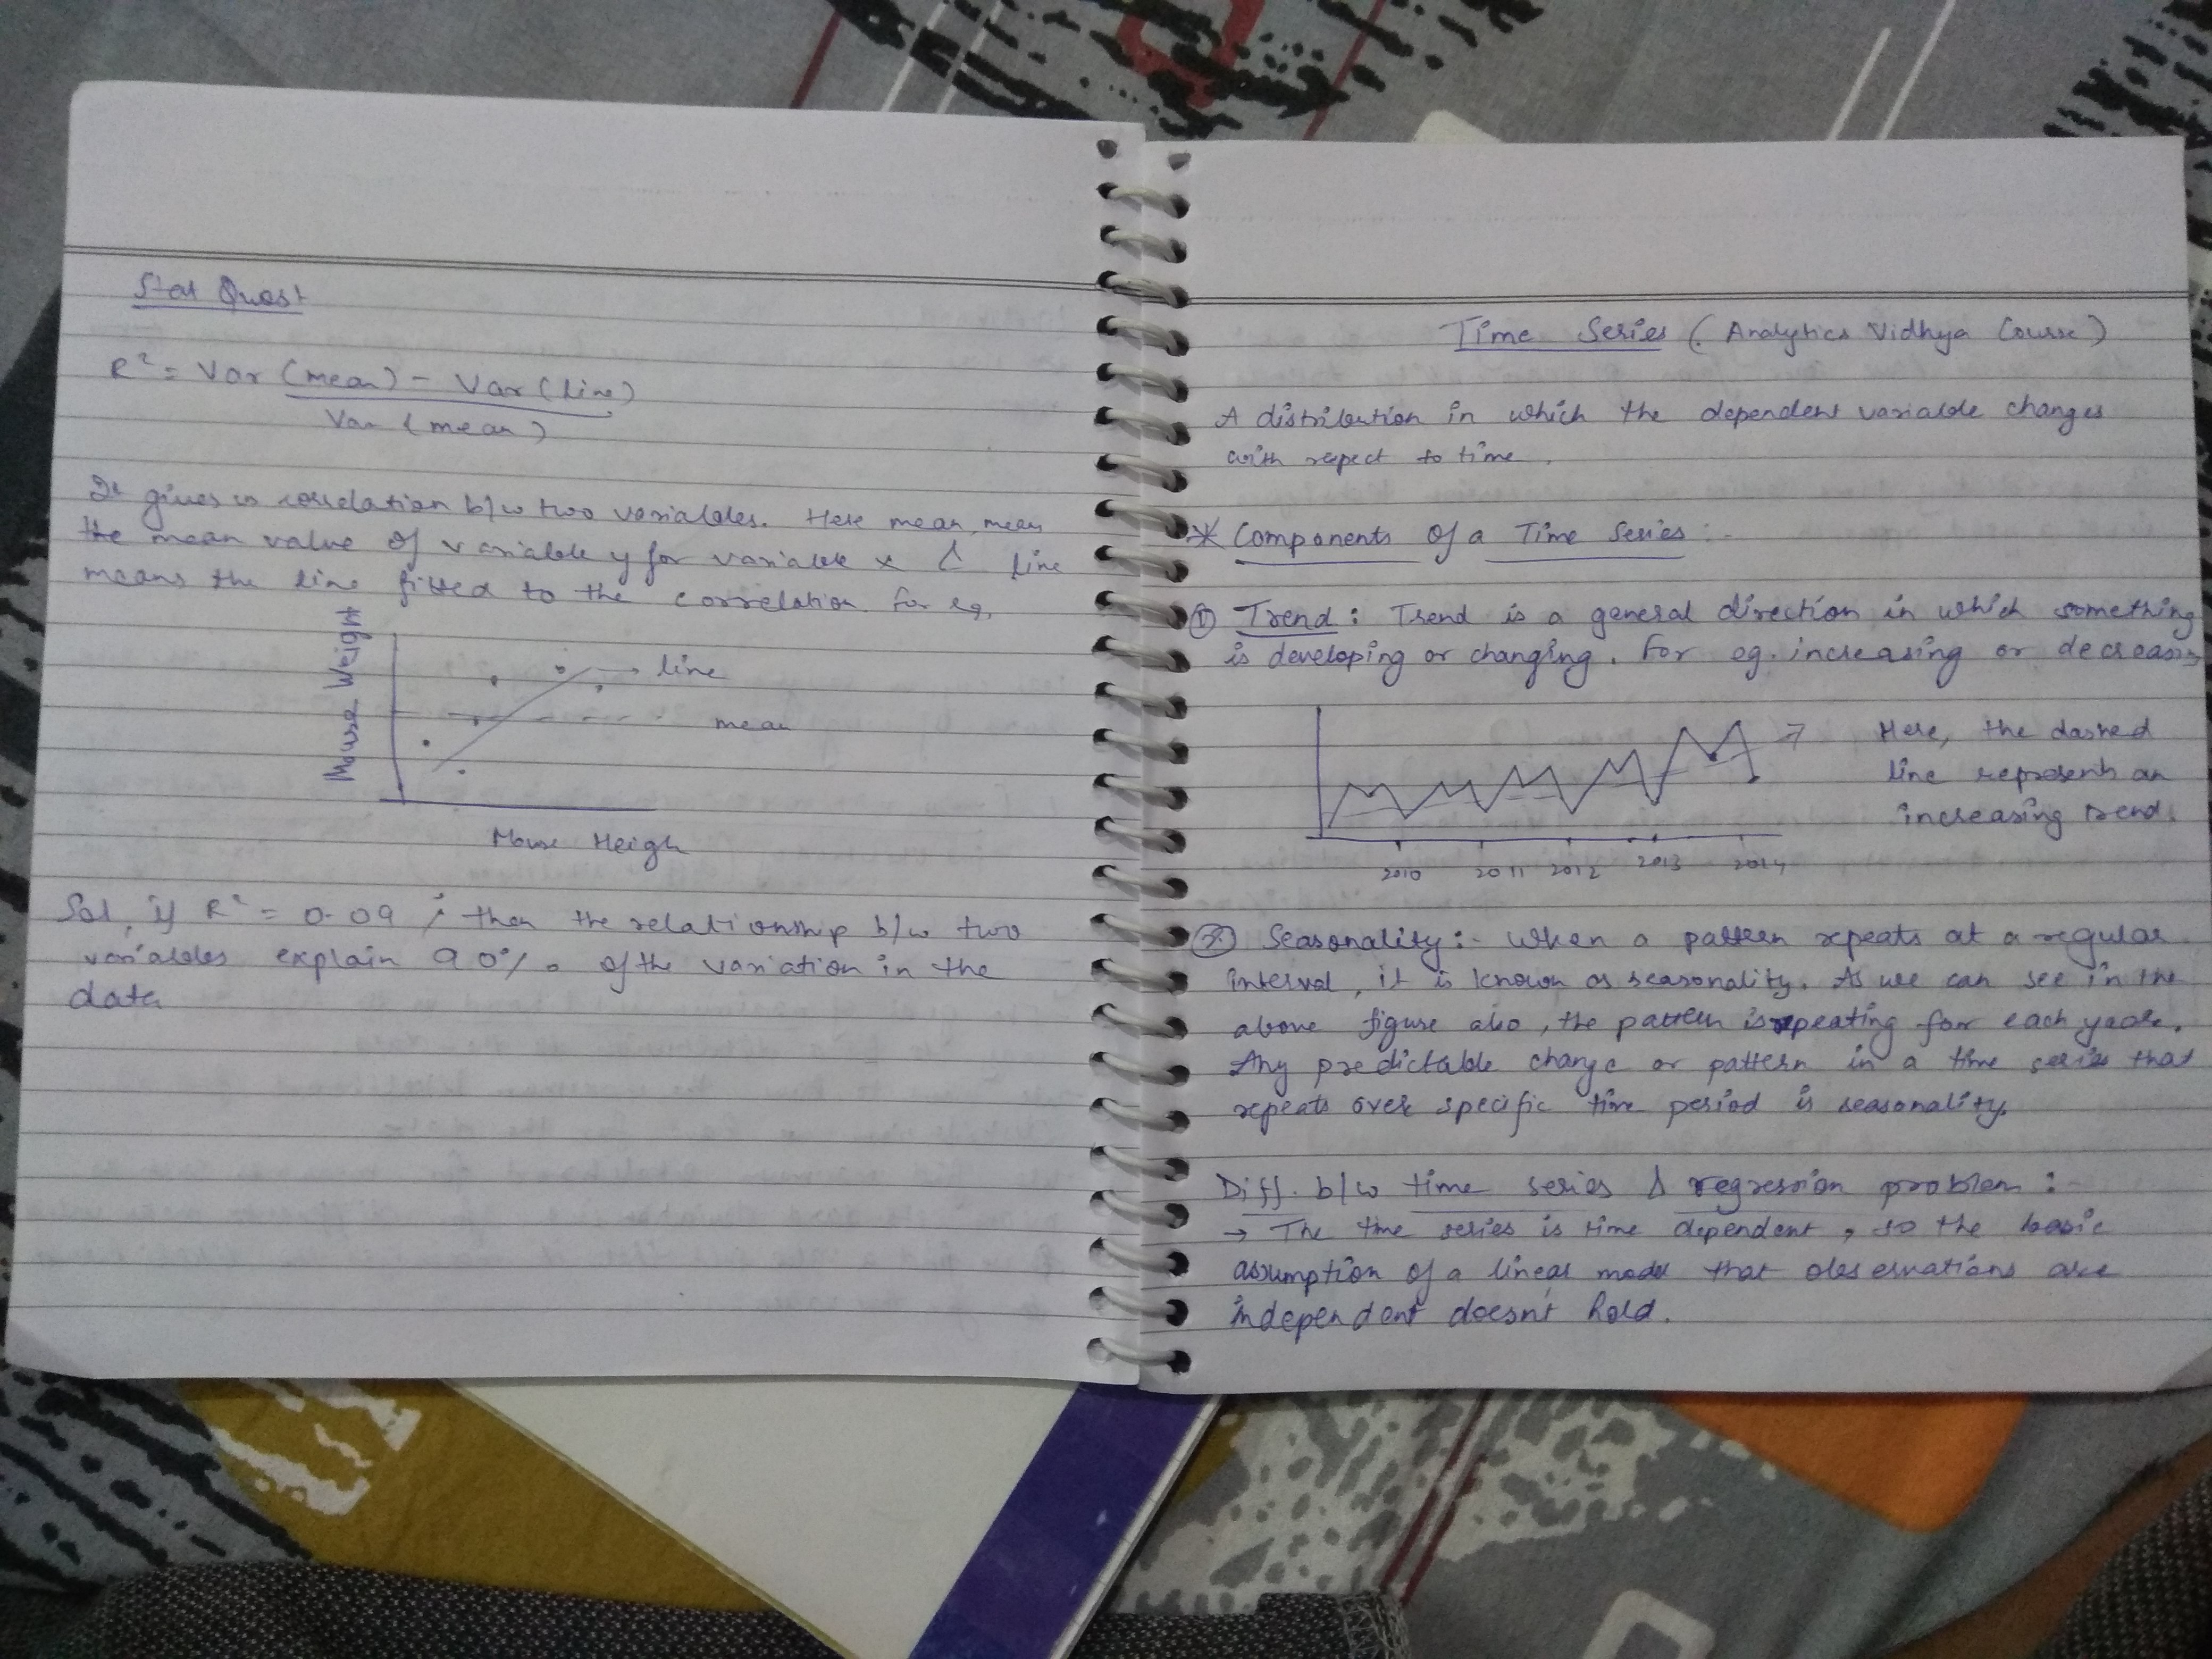 Stat Quest
R² = Var (mean) - Var (line)
Var (mean)
It gives us correlation b/w two variables. Here mean, mean
the mean value of variable y for variable x & line
means the line fitted to the correlation. For eg,
Mouse Weight
line
mean
Mouse Heigh
Sol, if R² = 0.09 ; then the relationship b/w two
variables explain 90%. of the variation in the
data
Time Series (Analytics Vidhya Course)
A distribution in which the dependent variable changes
with respect to time.
* Components Of a Time Series :-
① Trend : Trend is a general direction in which something
is developing or changing. For eg. increasing or decreasing
Here, the dashed
line represents an
increasing trend.
2010 2011 2012 2013 2014
② Seasonality :- When a pattern repeats at a regular
interval, it is known as seasonality. As we can see in the
above figure also, the pattern is repeating for each year.
Any predictable change or pattern in a time series that
repeats over specific time period is seasonality.
Diff. b/w time series & regression problem :-
→ The time series is time dependent, so the basic
assumption of a linear model that observations are
independent doesn't hold.